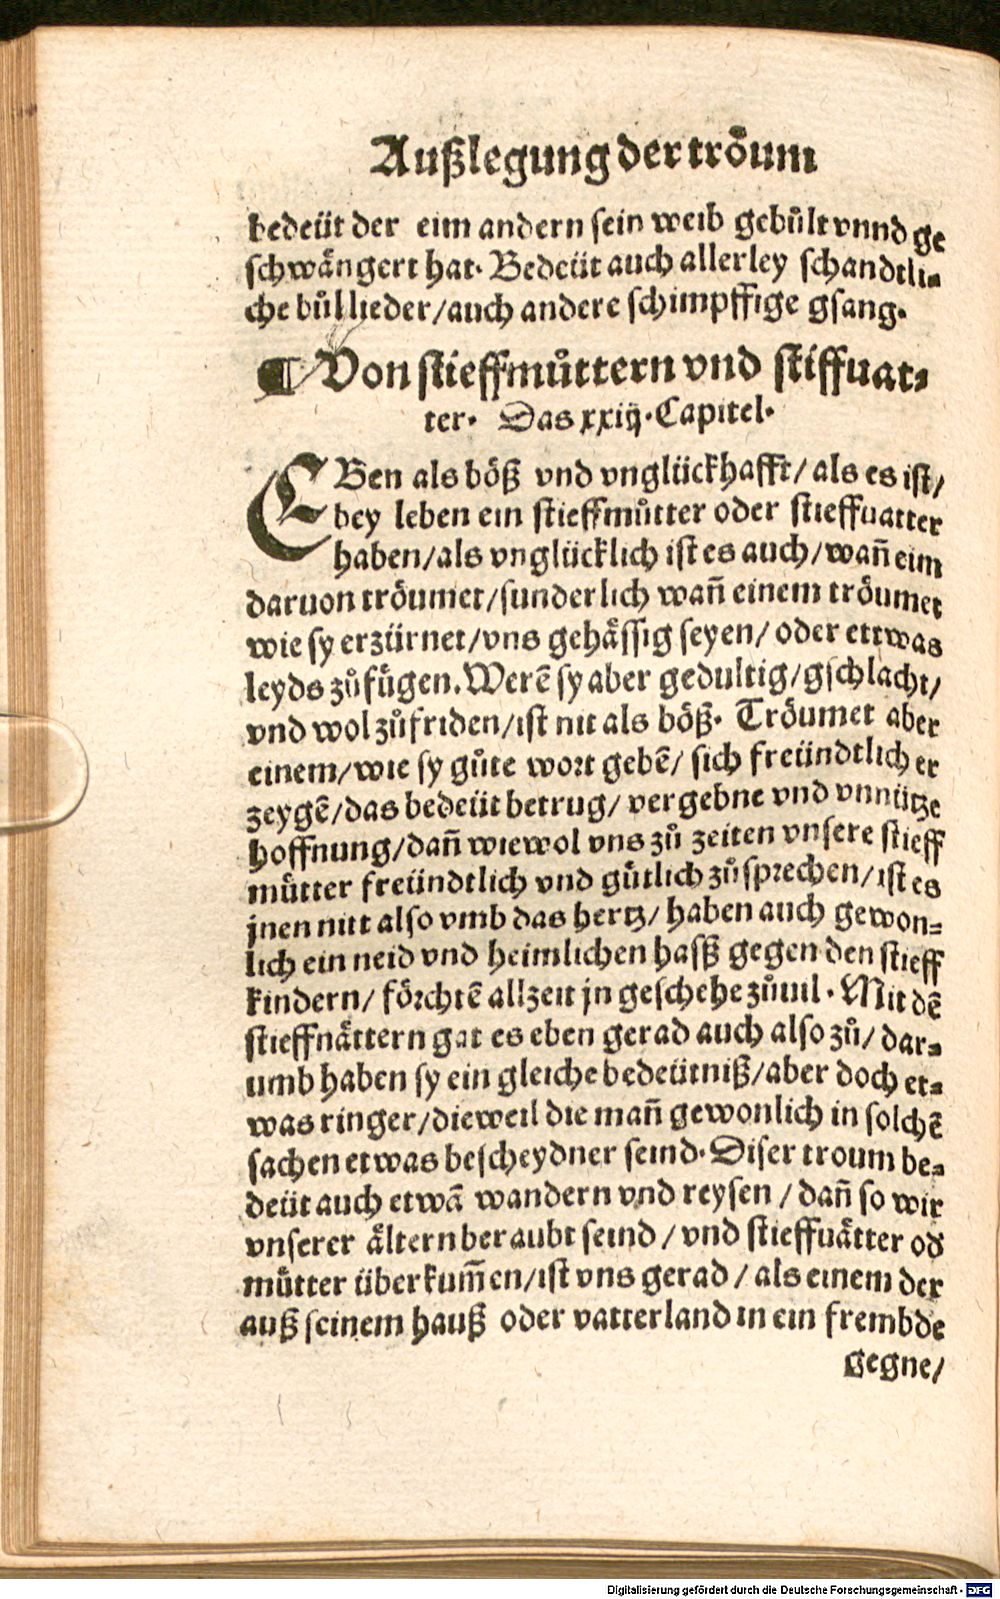 Außlegung der tröum
bedeüt der eim andern sein weib gebůlt vnnd ge
schwängert hat. Bedeüt auch allerley schandtli⸗
che bůllieder/auch andere schimpffige gsang.
¶ Von stieffmůttern vnd stiffuat⸗
ter. Das xxiij. Capitel.
EBen als böß vnd vnglückhafft/ als es ist/
bey leben ein stieffmůtter oder stieffuatter
haben/als vnglücklich ist es auch/wañ eim
daruon tröumet/sunderlich wañ einem tröumet
wie sy erzürnet/vns gehässig seyen/ oder ettwas
leyds zůfügen. Werē sy aber gedultig/gschlacht/
vnd wol zůfriden/ist nit als böß. Tröumet aber
einem/wie sy gůte wort gebē/ sich freündtlich er
zeygē/das bedeüt betrug/ vergebne vnd vnnütze
hoffnung/dañ wiewol vns zů zeiten vnsere stieff
mütter freündtlich vnd gütlich zůsprechen/ist es
jnen nitt also vmb das hertz/ haben auch gewon⸗
lich ein neid vnd heimlichen hasß gegen den stieff
kindern/ förchtē allzeit jn geschehe zůuil. Mit dē
stieffnättern gat es eben gerad auch also zů/ dar⸗
umb haben sy ein gleiche bedeütniß/aber doch et⸗
was ringer/dieweil die mañ gewonlich in solchē
sachen etwas bescheydner seind. Diser troum be⸗
deüt auch etwā wandern vnd reysen / dañ so wir
vnserer ältern beraubt seind / vnd stieffuätter od
mütter überkum̄en/ist vns gerad / als einem der
auß seinem hauß oder vatterland in ein frembde
gegne/
Digitalisierung gefördert durch die Deutsche Forschungsgemeinschaft - DFG